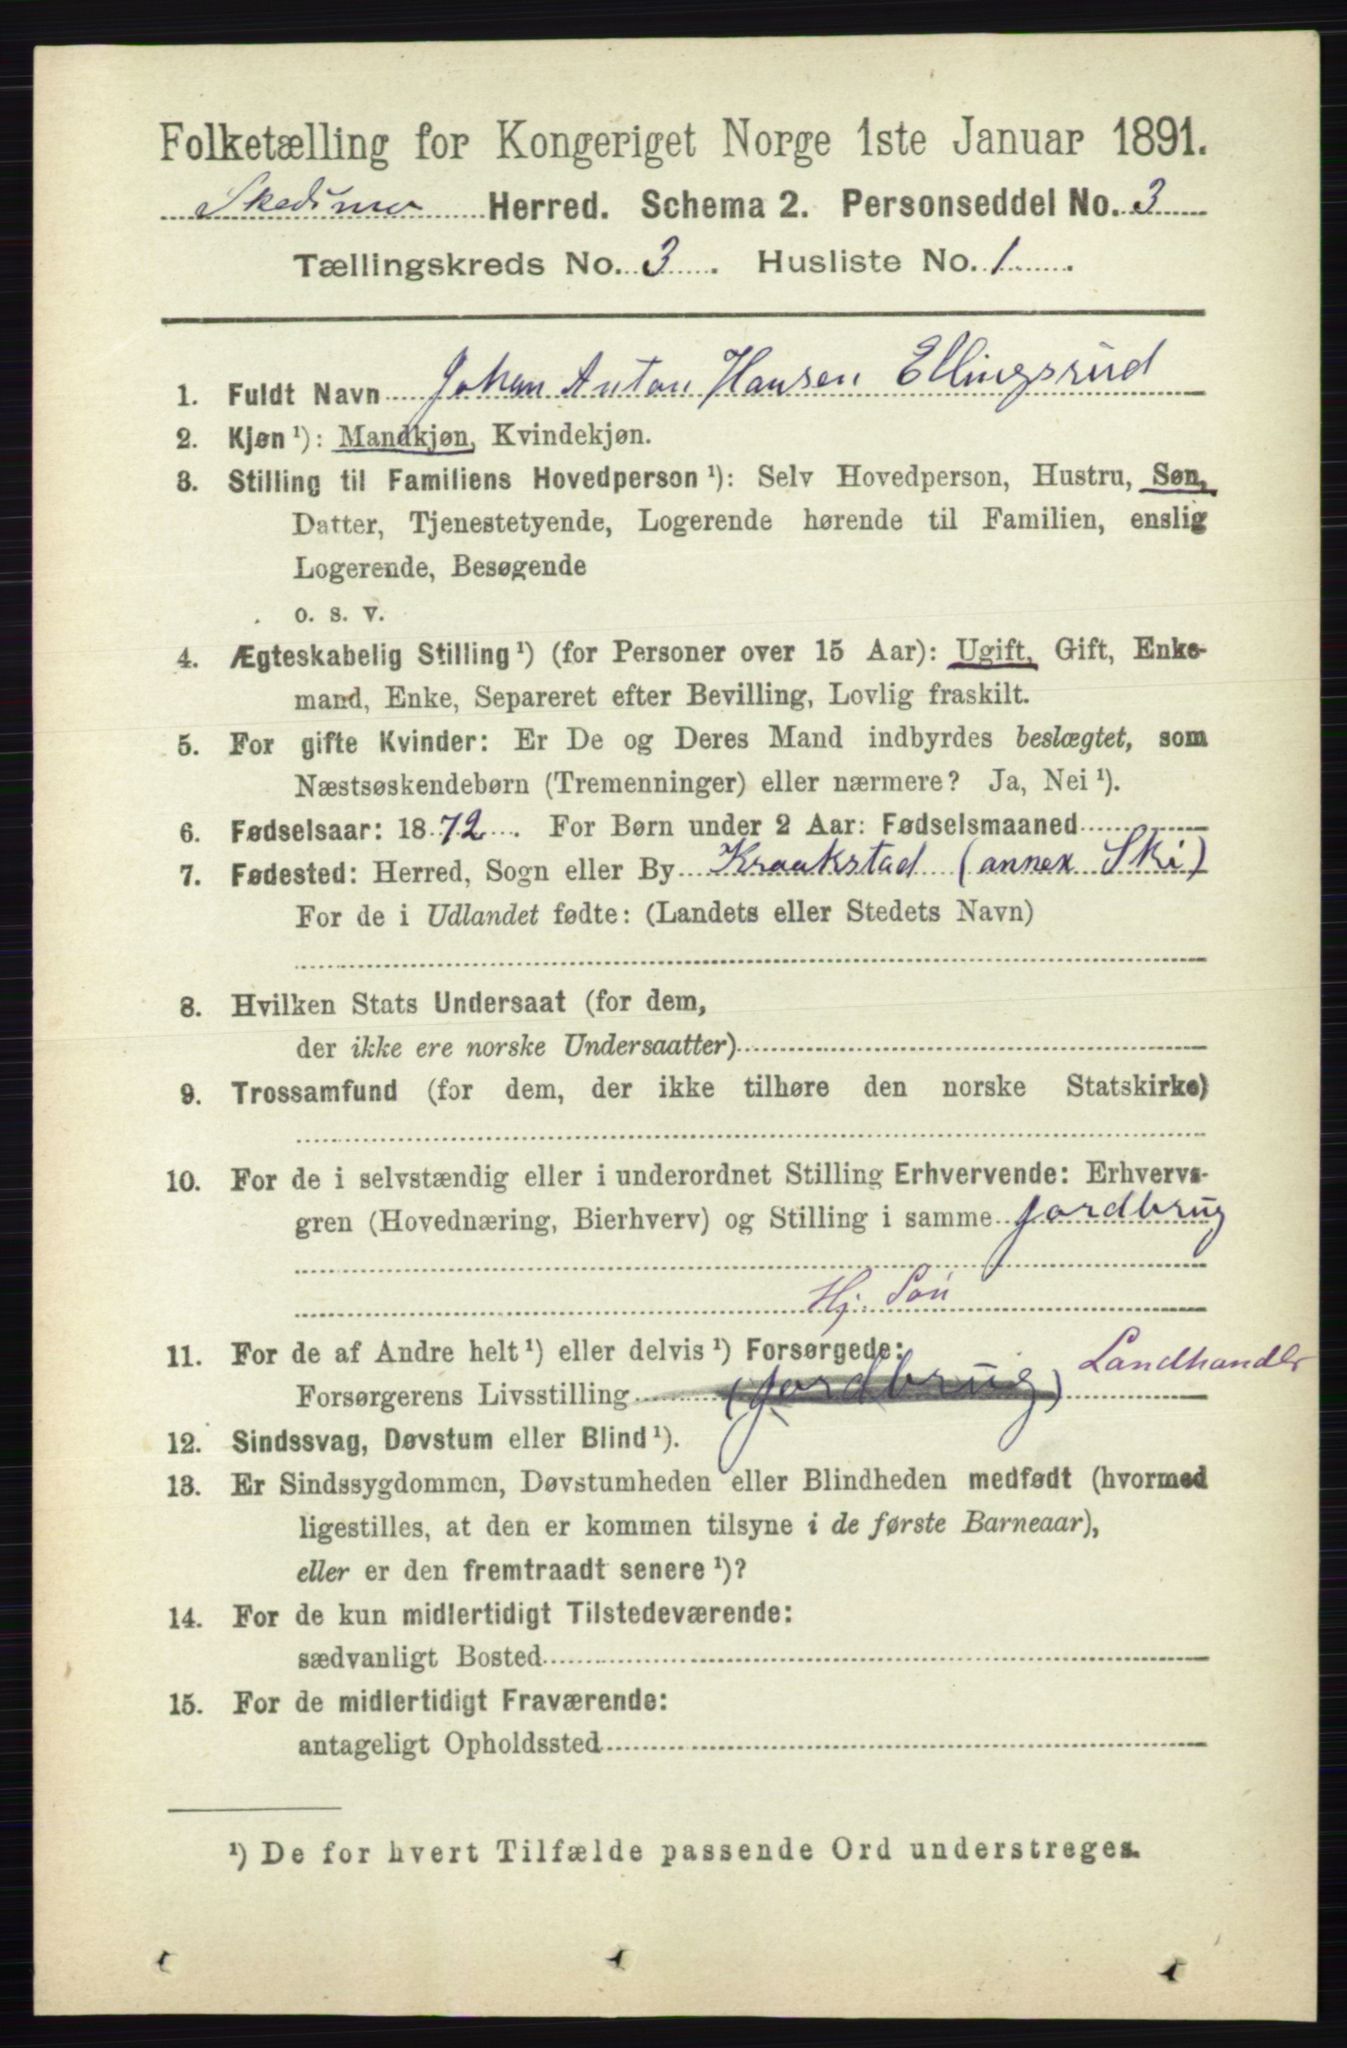 Folketælling for Kongeriget Norge 1ste Januar 1891.
Skedsmo Herred. Schema 2. Personseddel No. 3
Tællingskreds No. 3. Husliste No. 1.
1. Fuldt Navn Johan Anton Hansen Ellingsrud
2. Kjøn¹): Mandkjøn, Kvindekjøn.
3. Stilling til Familiens Hovedperson¹): Selv Hovedperson, Hustru, Søn,
Datter, Tjenestetyende, Logerende hørende til Familien, enslig
Logerende, Besøgende
o. s. v.
4. Ægteskabelig Stilling¹) (for Personer over 15 Aar): Ugift, Gift, Enke-
mand, Enke, Separeret efter Bevilling, Lovlig fraskilt.
5. For gifte Kvinder: Er De og Deres Mand indbyrdes beslægtet, som
Næstsøskendebørn (Tremenninger) eller nærmere? Ja, Nei¹).
6. Fødselsaar: 1872. For Børn under 2 Aar: Fødselsmaaned
7. Fødested: Herred, Sogn eller By Kraakstad (annex Ski)
For de i Udlandet fødte: (Landets eller Stedets Navn)
8. Hvilken Stats Undersaat (for dem,
der ikke ere norske Undersaatter)
9. Trossamfund (for dem, der ikke tilhøre den norske Statskirke)
10. For de i selvstændig eller i underordnet Stilling Erhvervende: Erhvervs-
gren (Hovednæring, Bierhverv) og Stilling i samme Jordbrug
Hj. Søn
11. For de af Andre helt¹) eller delvis¹) Forsørgede:
Forsørgerens Livsstilling (Jordbrug) Landhandler
12. Sindssvag, Døvstum eller Blind¹).
13. Er Sindssygdommen, Døvstumheden eller Blindheden medfødt (hvormed
ligestilles, at den er kommen tilsyne i de første Barneaar),
eller er den fremtraadt senere¹)?
14. For de kun midlertidigt Tilstedeværende:
sædvanligt Bosted
15. For de midlertidigt Fraværende:
antageligt Opholdssted
¹) De for hvert Tilfælde passende Ord understreges.